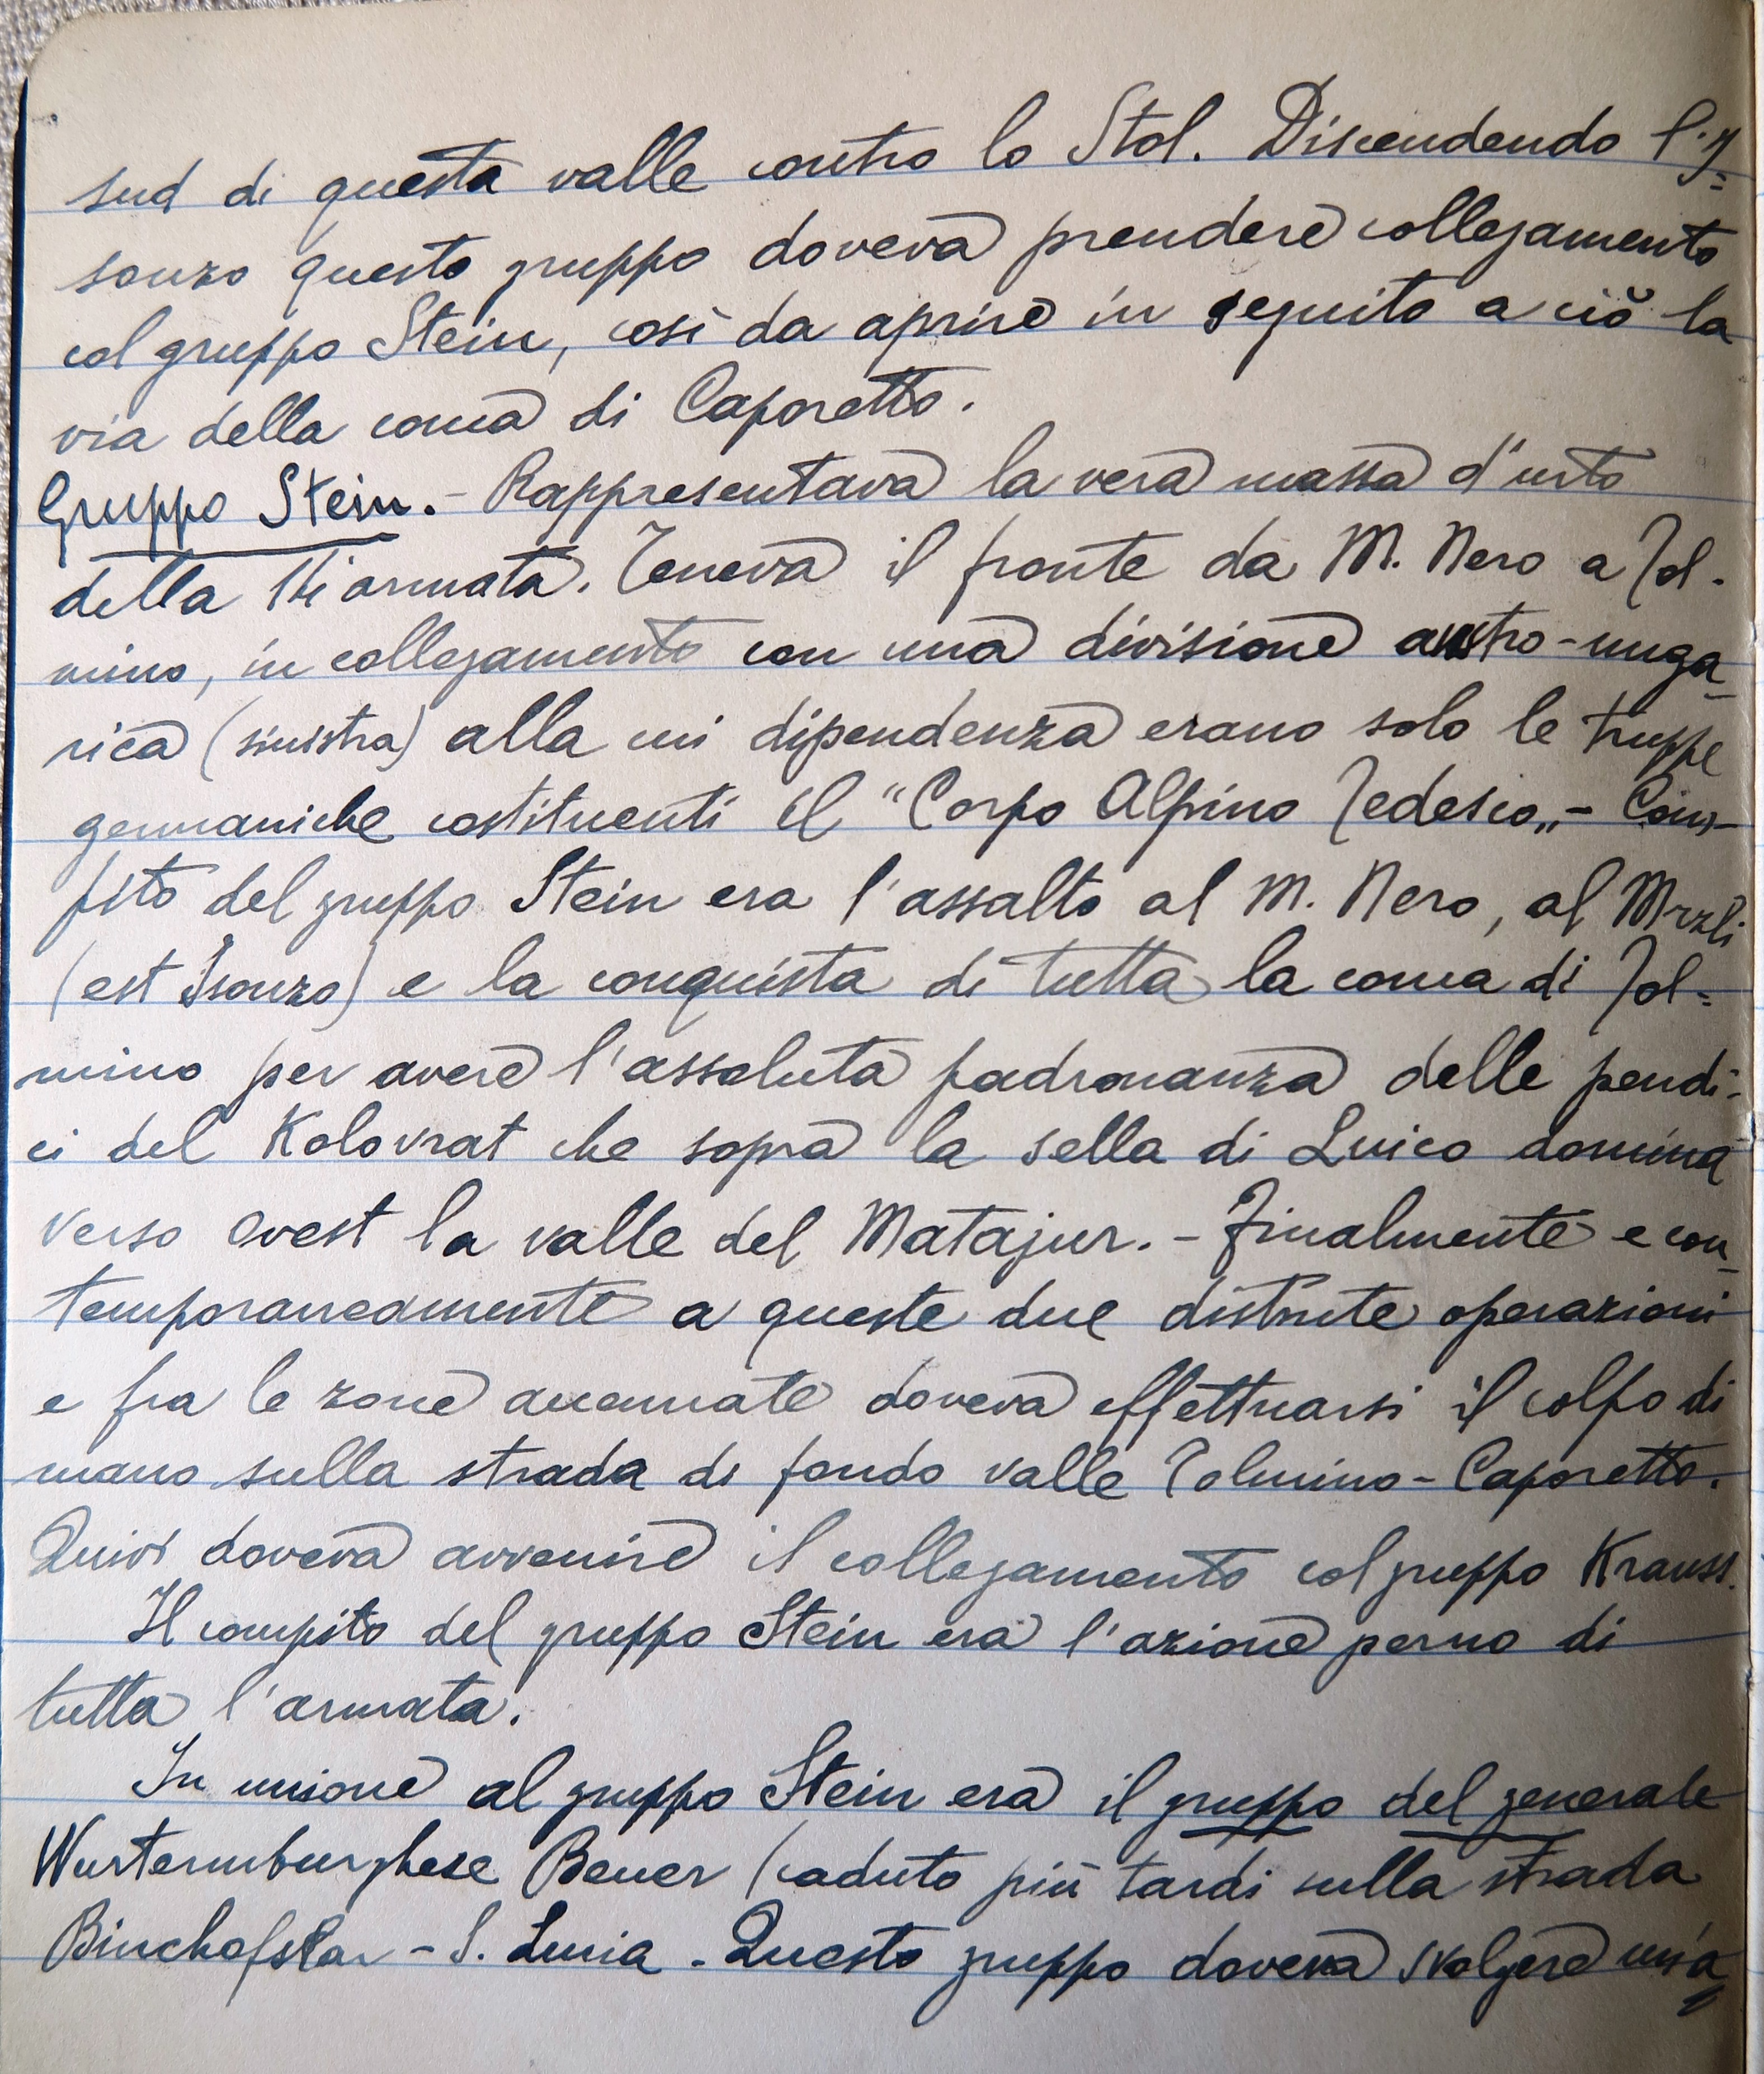 sud di questa valle contro lo Stol. Discendendo l'I=
sonzo questo gruppo doveva prendere collegamento
col gruppo Stein, così da aprire in seguito a ciò la
via della conca di Caporetto.
Gruppo Stein. - Rappresentava la vera massa d'urto
della 14 armata. Teneva il fronte da M. Nero a Tol-
mino, in collegamento con una divisione austro-unga-
rica (sinistra) alla cui dipendenza erano solo le truppe
germaniche costituenti il "Corpo Alpino Tedesco„ - Com-
pito del gruppo Stein era l'assalto al M. Nero, al Mrzli
(est Isonzo) e la conquista di tutta la conca di Tol=
mino per avere l'assoluta padronanza delle pendi=
ci del Kolovrat che sopra la sella di Luico domina
verso ovest la valle del Matajur. - Finalmente e con-
temporaneamente a queste due distinte operazioni
e fra le zone accennate doveva effettuarsi il colpo di
mano sulla strada di fondo valle Tolmino - Caporetto.
Quivi doveva avvenire il collegamento col gruppo Krauss.
Il compito del gruppo Stein era l'azione perno di
tutta l'armata.
In unione al gruppo Stein era il gruppo del generale
Wurtemburghese Berrer (caduto più tardi sulla strada
- S. Lucia - Questo gruppo doveva svolgere un'a